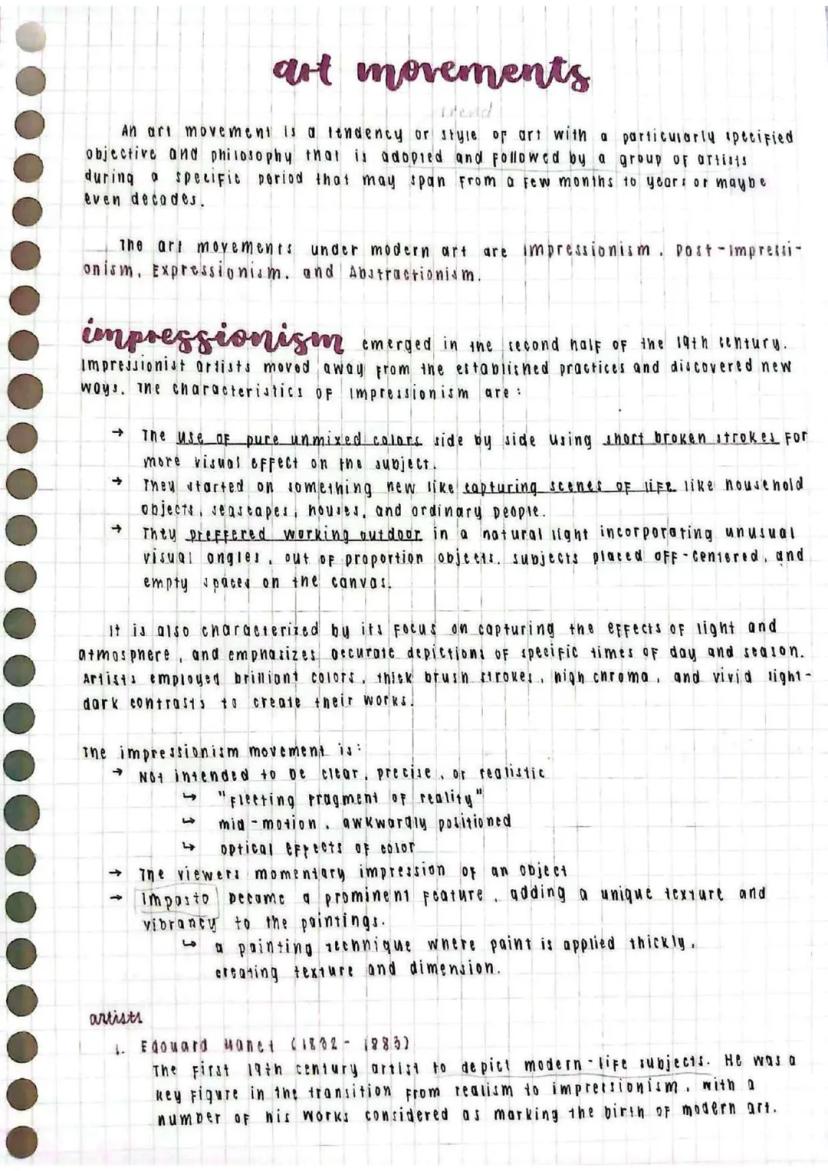 art movements
trend
An art movement is a tendency or style of art with a particularly specified
objective and philosophy that is adopted and followed by a group of artists
during a specific period that may span from a few months to years or maybe
even decades.
The art movements under modern art are Impressionism, Post-Impressi-
onism, Expressionism, and Abstractionism.
impressionism emerged in the second half of the 19th century.
Impressionist artists moved away from the established practices and discovered new
ways. The characteristics of Impressionism are:
→ The use of pure unmixed colors side by side using short broken strokes for
more visual effect on the subject.
→ They started on something new like capturing scenes of life like household
objects, seascapes, houses, and ordinary people.
→ They preffered working outdoor in a natural light incorporating unusual
visual angles, out of proportion objects, subjects placed off-centered, and
empty spaces on the canvas.
It is also characterized by its focus on capturing the effects of light and
atmosphere, and emphasizes accurate depictions of specific times of day and season.
Artists employed brilliant colors, thick brush strokes, high chroma, and vivid light-
dark contrasts to create their works.
The impressionism movement is:
→ Not intended to be clear, precise, or realistic
↳ "fleeting fragment of reality"
↳ mid-motion, awkwardly positioned
↳ optical effects of color
→ The viewers momentary impression of an object
→ Impasto became a prominent feature, adding a unique texture and
vibrancy to the paintings.
↳ a painting technique where paint is applied thickly,
creating texture and dimension.
artists
1. Edouard Manet (1832 - 1883)
The first 19th century artist to depict modern-life subjects. He was a
key figure in the transition from realism to impressionism, with a
number of his works considered as marking the birth of modern art.